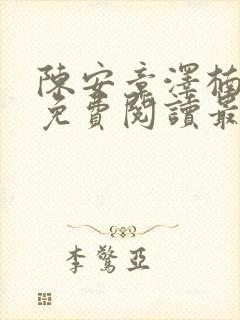 陳安意澤楠
免費閱讀最
李驚亞